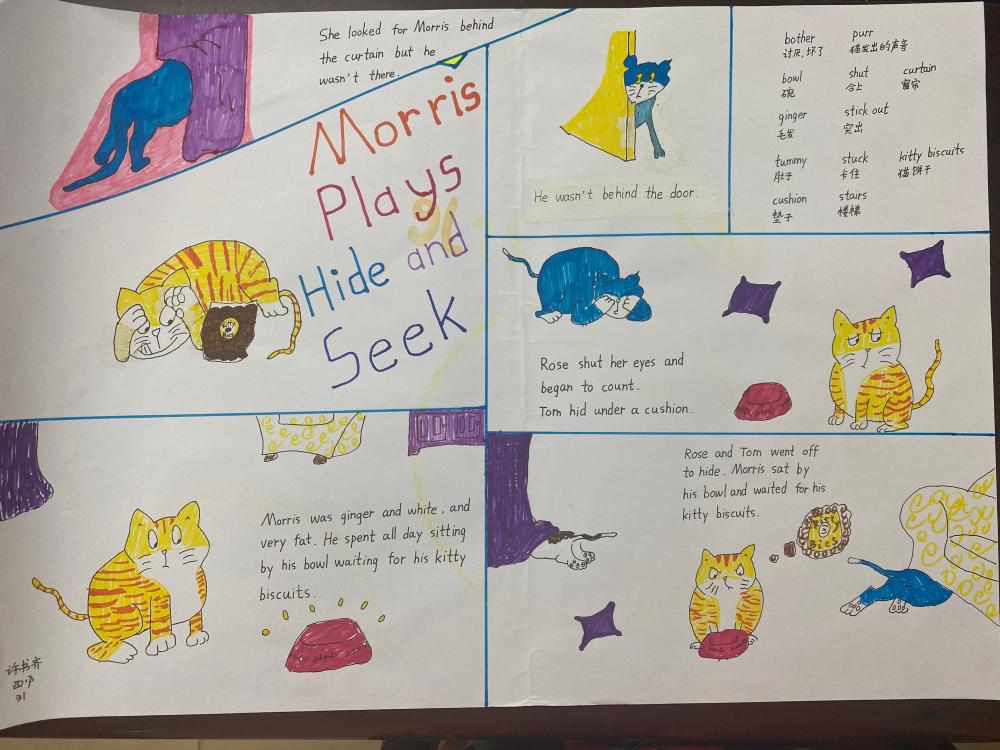 She looked for Morris behind
the curtain but he
wasn't there.
Morris
Plays
Hide and
Seek
He wasn't behind the door.
bother
讨厌,坏了
purr
猫发出的声音
bowl
碗
shut
合上
curtain
窗帘
ginger
毛发
stick out
突出
tummy
肚子
stuck
卡住
kitty biscuits
猫饼干
cushion
垫子
stairs
楼梯
Rose shut her eyes and
began to count.
Tom hid under a cushion.
Morris was ginger and white, and
very fat. He spent all day sitting
by his bowl waiting for his kitty
biscuits.
Rose and Tom went off
to hide. Morris sat by
his bowl and waited for his
kitty biscuits.
许书齐
31